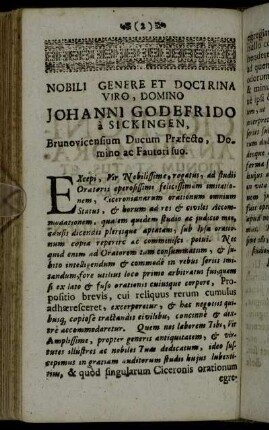 (2)
NOBILI GENERE ET DOCTRINA
VIRO, DOMINO
JOHANNI GODEFRIDO
à SICKINGEN,
Brunovicensium Ducum Præfecto, Do-
mino ac Fautori suo.
EXcepi, Vir Nobilissime, rogatus, ad studii
Oratorii operosissimi felicissimam imitatio-
nem, Ciceronianarum orationum omnium
Status, & horum ad res & civiles accom-
modationem, quam quidem studio ac judicio meo,
adulti dicendis plerisque aptatam, sub ipsa oratio-
num copia reperire ac comminisci potui. Nec
quid enim ad Oratorem tam consummatum, &
imitio intelligendum & commodè in rebus seriis imi-
tandum, fore utilius loco primo arbitratus
si ex lato & fuso orationis cujusque corpore, Pro-
positio brevis, cui reliquus rerum cumulus
adhæresceret, excerperetur, & hac negotiis qui-
busq, copiosè tractandis civilibus, concinnè & dex-
trè accommodaretur. Quem nos laborem Tibi, Vir
Amplissime, propter generis antiquitatem, & vir-
tutes illustres ac nobiles Tuas dedicatum, ideo sus-
cepimus in gratiam auditorum studii hujus
&, quòd singularum Ciceronis orationum
egre-